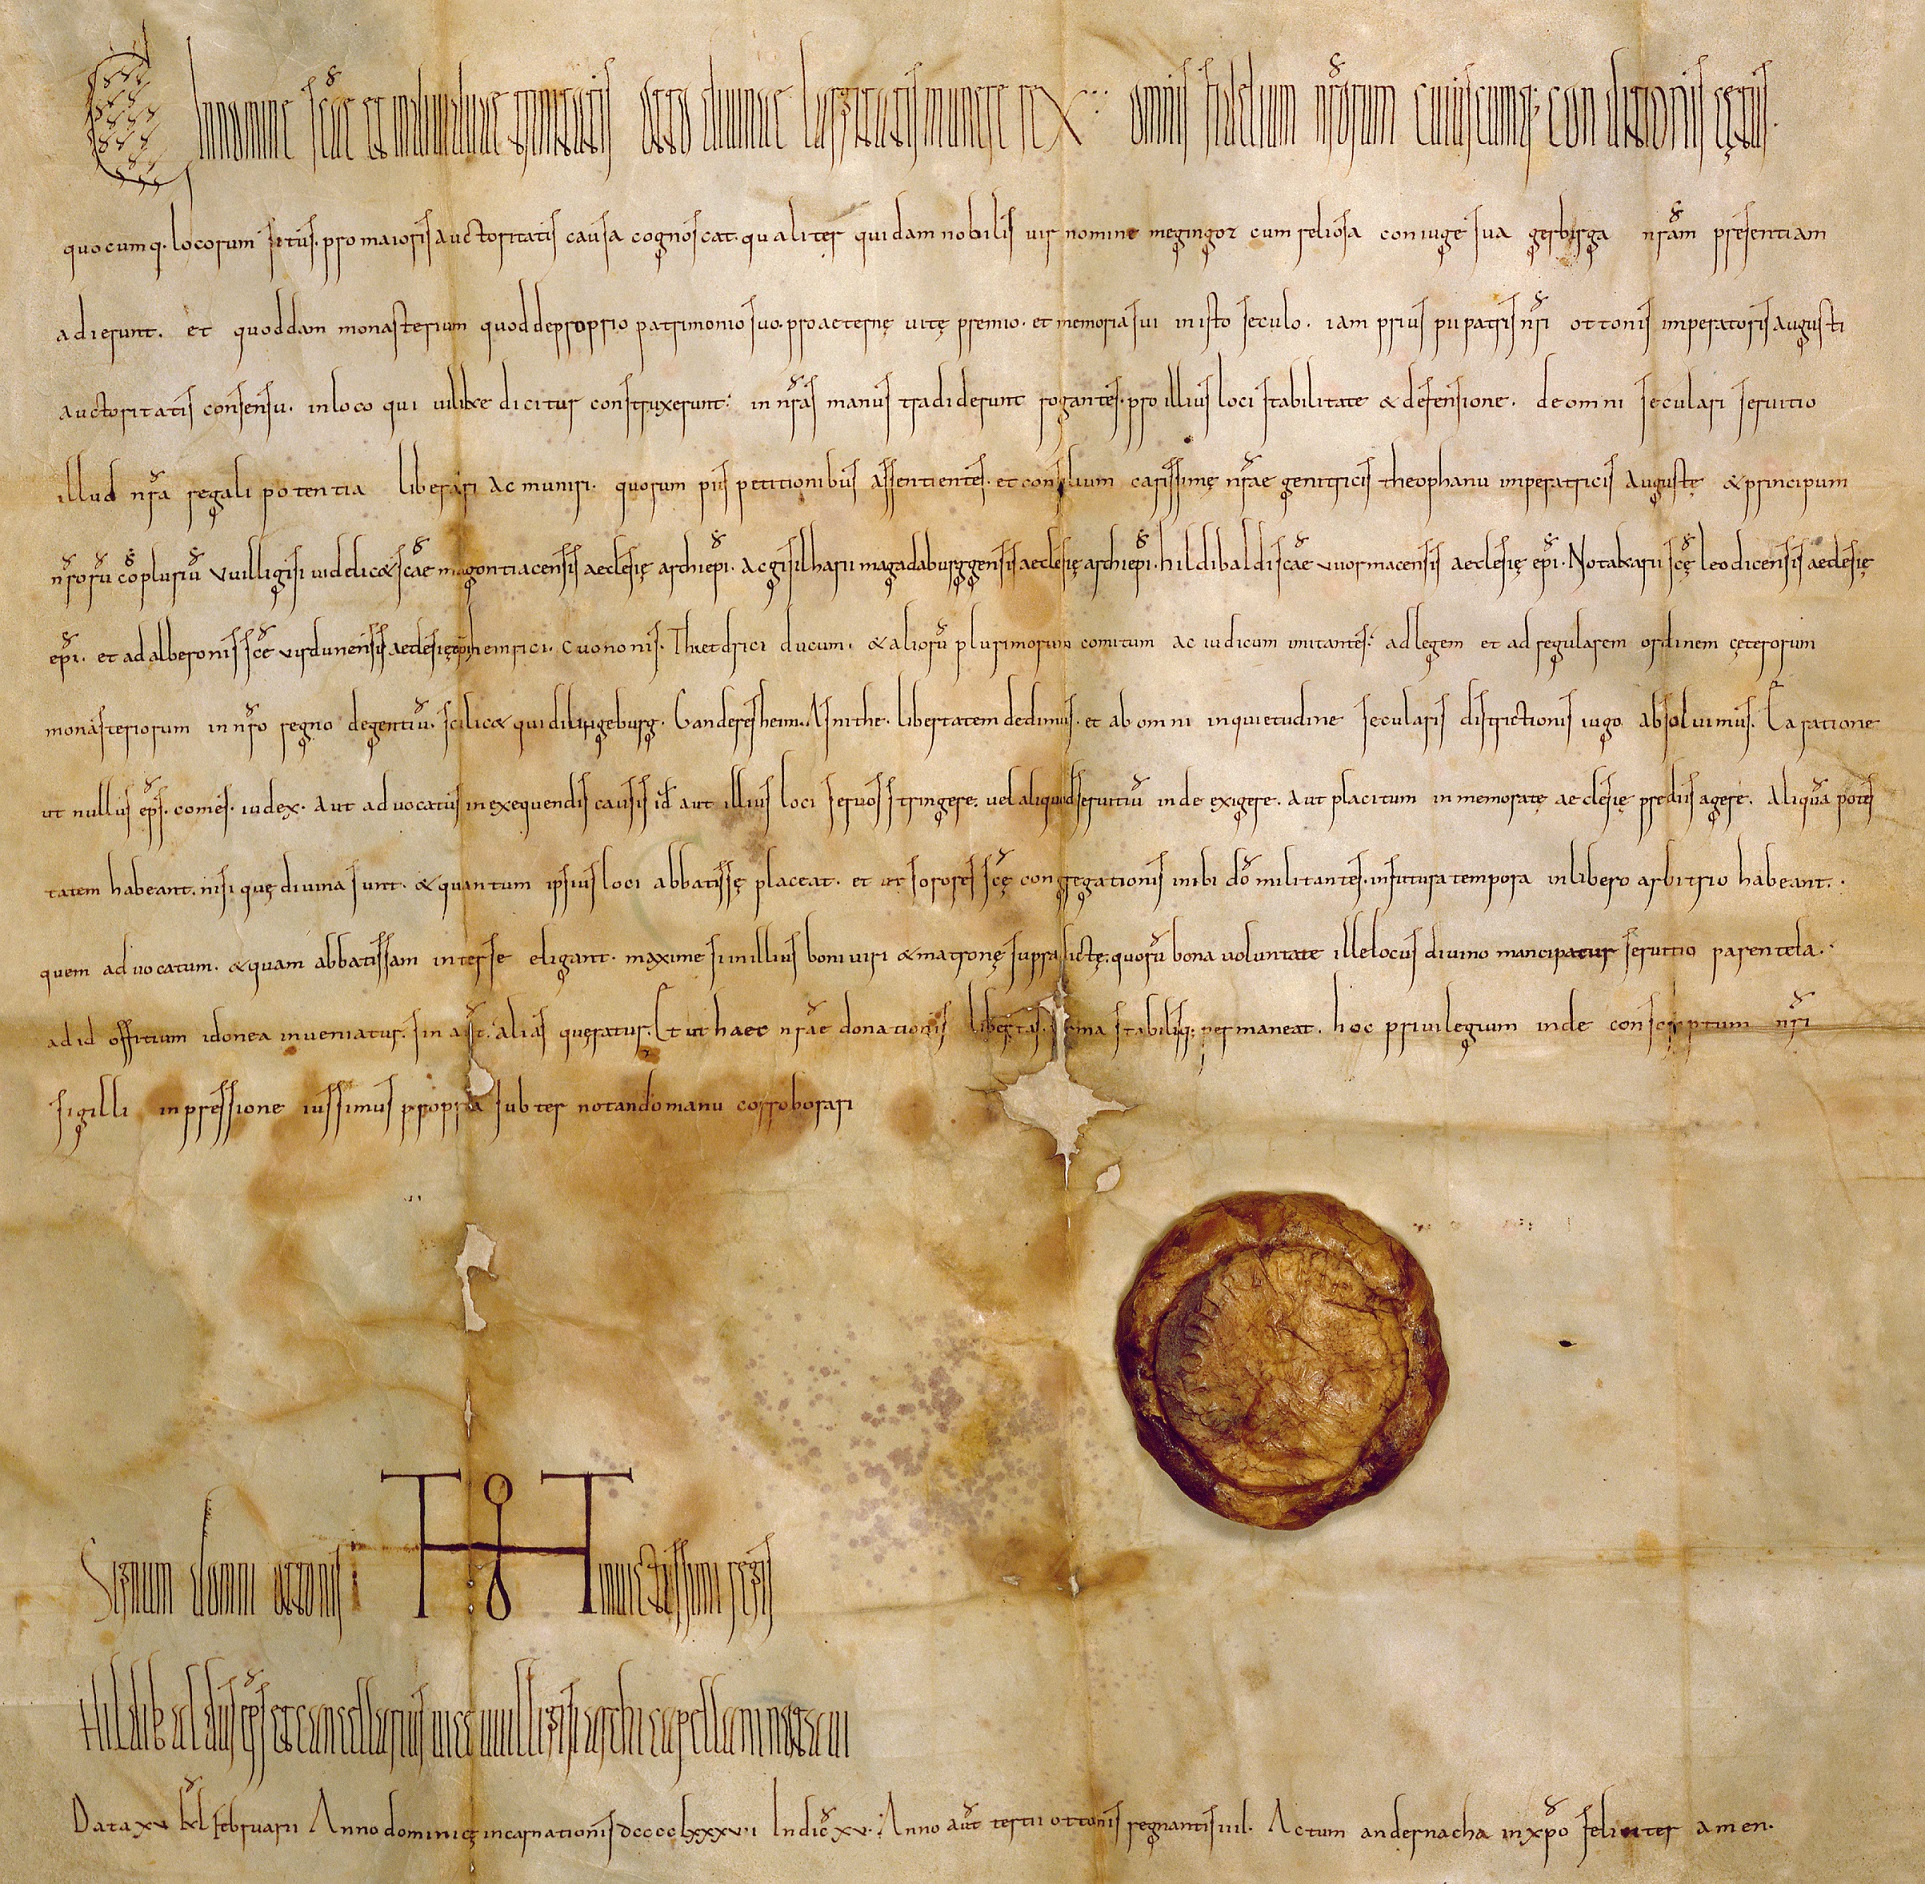 In nomine scae et individuae trinitatis otto divinae largitatis munere rex omnis fidelium nrorum cuiuscumq; conditionis cętus.
quocumq. locorum situs. pro maioris auctoritatis causa cognoscat. qualiter quidam nobilis vir nomine megingoz cum reliosa coniuge sua gerbirga nram presentiam
adierunt. et quoddam monasterium quod de proprio patrimonio suo. pro aeternę vitę premio. et memoria sui in isto seculo. iam prius pii patris nri ottonis imperatoris augusti
auctoritatis consensu. in loco qui vilike dicitur construxerunt: in nras manus tradiderunt rogantes. pro illius loci stabilitate & defensione. de omni seculari servitio
illud nra regali potentia liberari ac muniri. quorum piis petitionibus assentientes. et consilium carissimę nrae genitricis theophanu imperatricis augustę & principum
nrorū cōpluriū vvilligisi videlic& scae magontiacensis aeclesię archiepi. ac gisilharii magadaburggensis aeclesię archiepi. hildibaldi scae vvormacensis aeclesię epi. Notakarii scę leodicensis aeclesię
epi. et adalberonis scę virdunensis aeclesię epi heinrici. cuononis. Thietdrici ducum. & aliorū plurimorum comitum ac iudicum imitantes: ad legem et ad regularem ordinem cęterorum
monasteriorum in nro regno degentiū. scilic& quidilingeburg. Ganderesheim. Asnithe. libertatem dedimus. et ab omni inquietudine secularis districtionis iugo absolvimus. Ea ratione
ut nullus eps. comes. iudex. aut advocatus in exequendis causis id aut illius loci servos stringere. vel aliquod servitiū inde exigere. aut placitum in memoratę aeclesię prediis agere. aliquā potes
tatem habeant. nisi quę divina sunt. & quantum ipsius loci abbatissę placeat. et ut sorores scę congregationis inibi dō militantes. in futura tempora in libero arbitrio habeant.
quem advocatum. & quam abbatissam inter se eligant. maxime si in illius boni viri & matronę supradictę. quorū bona voluntate ille locus divino mancipatur servitio parentela.
ad id offitium idonea inveniatur. sin aut. alias quęratur. Et ut haec nrae donationis libertas. firma stabilisq; permaneat. hoc privilegium inde conscriptum nri
sigilli inpressione iussimus propria subter notando manu corroborari
Signum domni ottonis invictissimi regis
Hildibaldus eps et cancellarius vice vvilligisi archicapellani notavi
Data xv kl februarii Anno dominicę incarnationis dcccclxxxvii Indic xv. Anno aut tertii ottonis regnantis iiii. Actum andernacha in xpo feliciter amen.